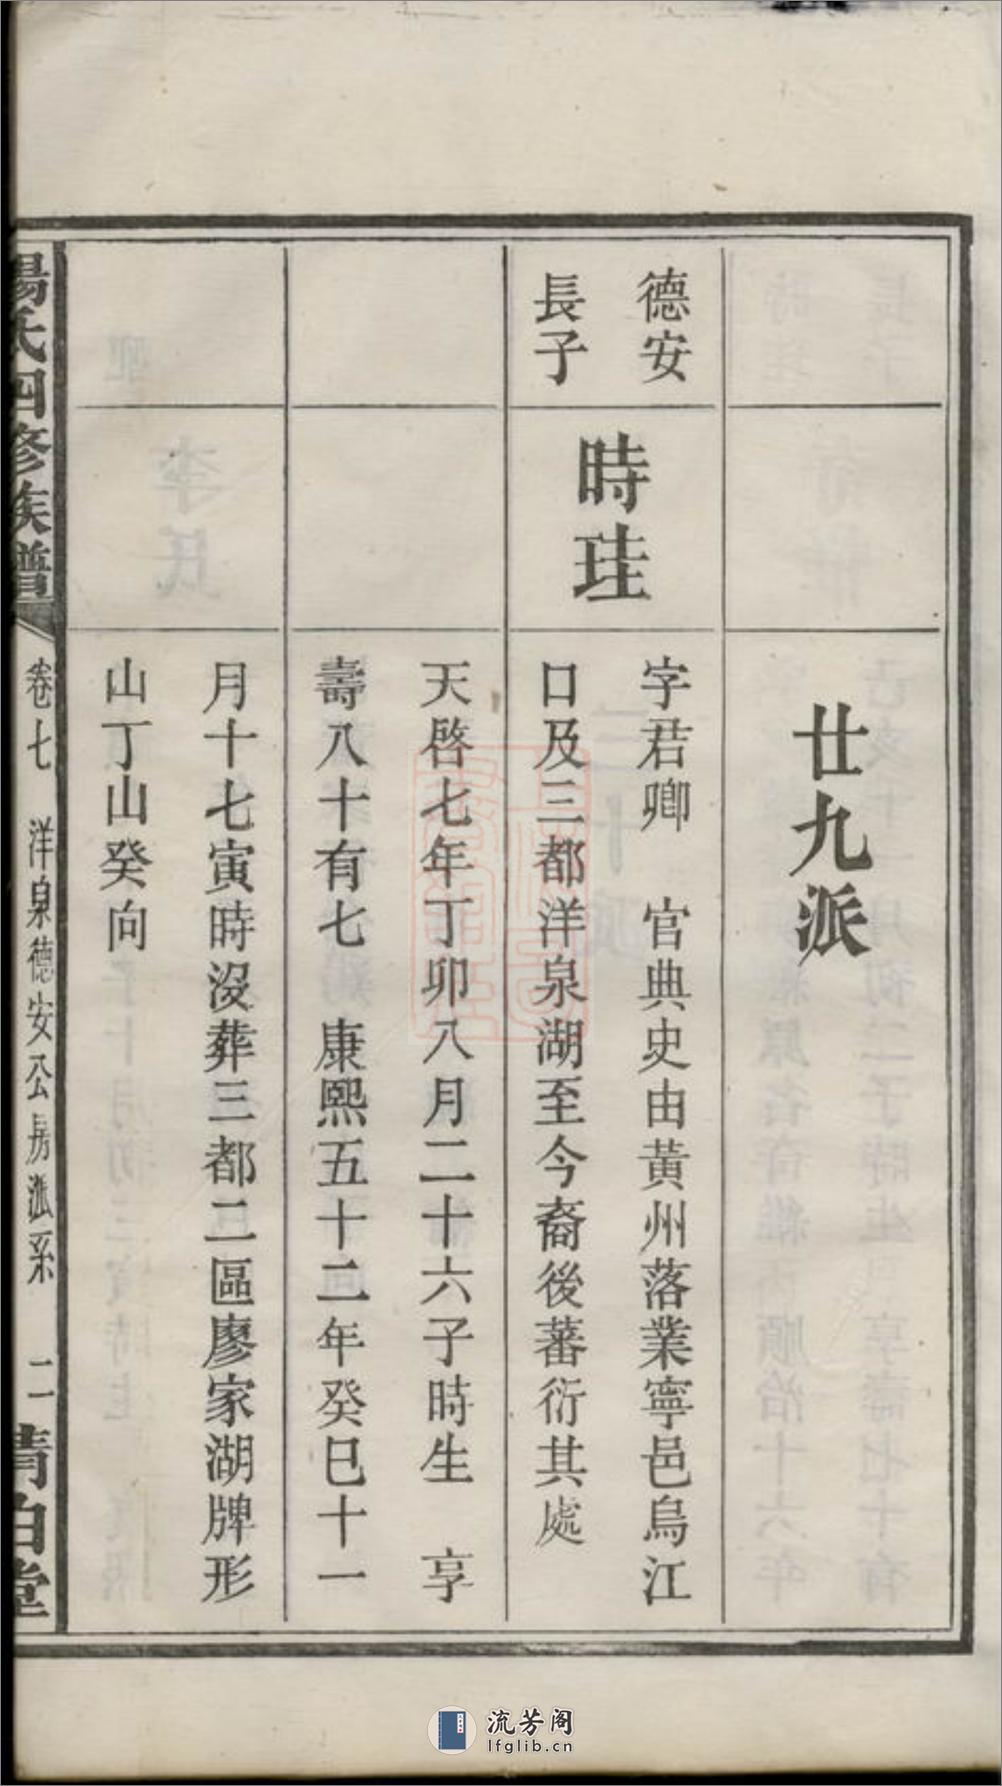 廿九派
德安
長子
時珪
字君卿　官典史由黃州落業寧邑烏江
口及三都洋泉湖至今裔後蕃衍其處
天啓七年丁卯八月二十六子時生　享
壽八十有七　康熙五十二年癸巳十一
月十七寅時沒葬三都二區廖家湖牌形
山丁山癸向
楊氏四修族譜
卷七　洋泉德安公房派系　二
清白堂
流芳阁
lfglib.cn